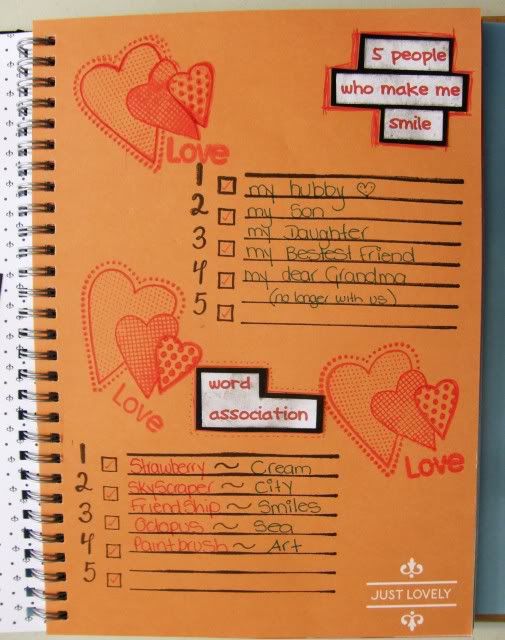 5 people
who make me
smile
Love
1
my hubby ♡
2
my Son
3
my Daughter
my Bestest Friend
4
my dear Grandma
(no longer with us)
5
Love
word
association
Love
1
Strawberry ~ Cream
2
SkyScraper ~ City
3
Friendship ~ Smiles
Octopus ~ Sea
4
Paintbrush ~ Art
5
JUST LOVELY